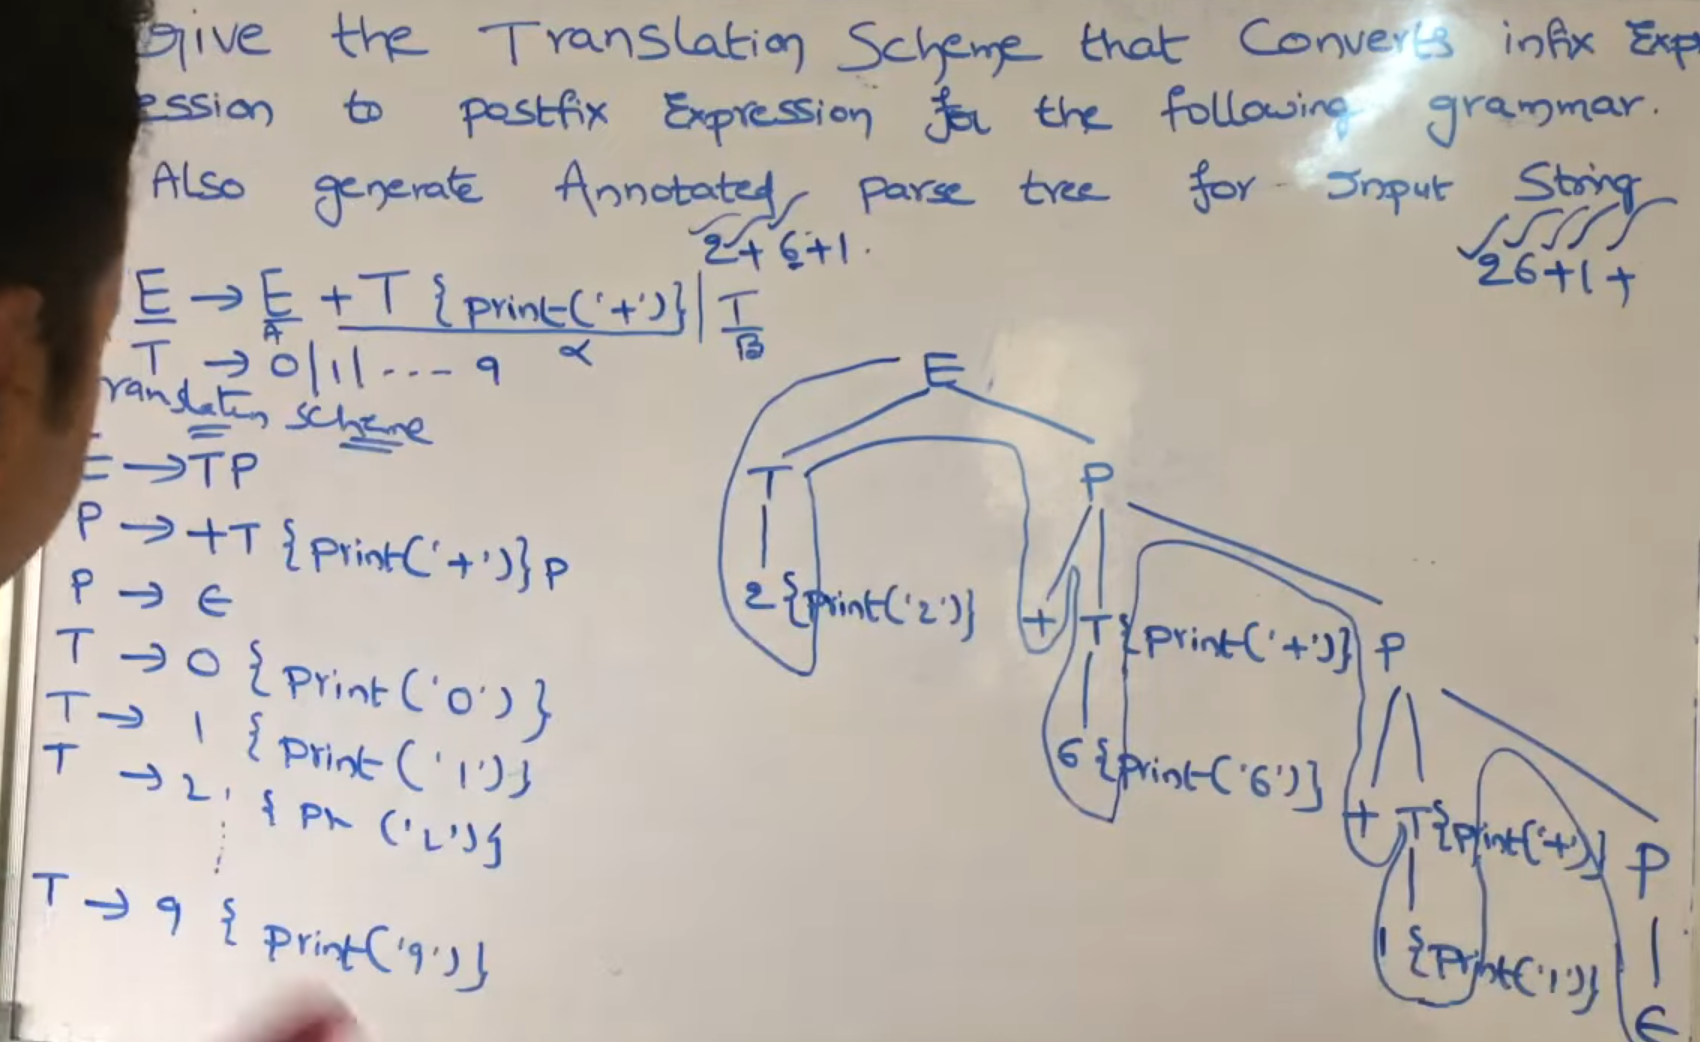 Give the Translation Scheme that Converts infix Exp
ession to postfix Expression for the following grammar.
Also generate Annotated parse tree for Input String
2+6+1.
26+1+
E → E + T {print('+')} | T
A α B
T → 0|1|---9
ranslation scheme
E → TP
P → +T {print('+')} P
P → ϵ
T → 0 {print('0')}
T → 1 {print('1')}
T → 2 {Pr('2')}
T → 9 {print('9')}
E
T P
2 {print('2')} + T {print('+')} P
6 {print('6')} + T {print('+')} P
1 {print('1')} ϵ